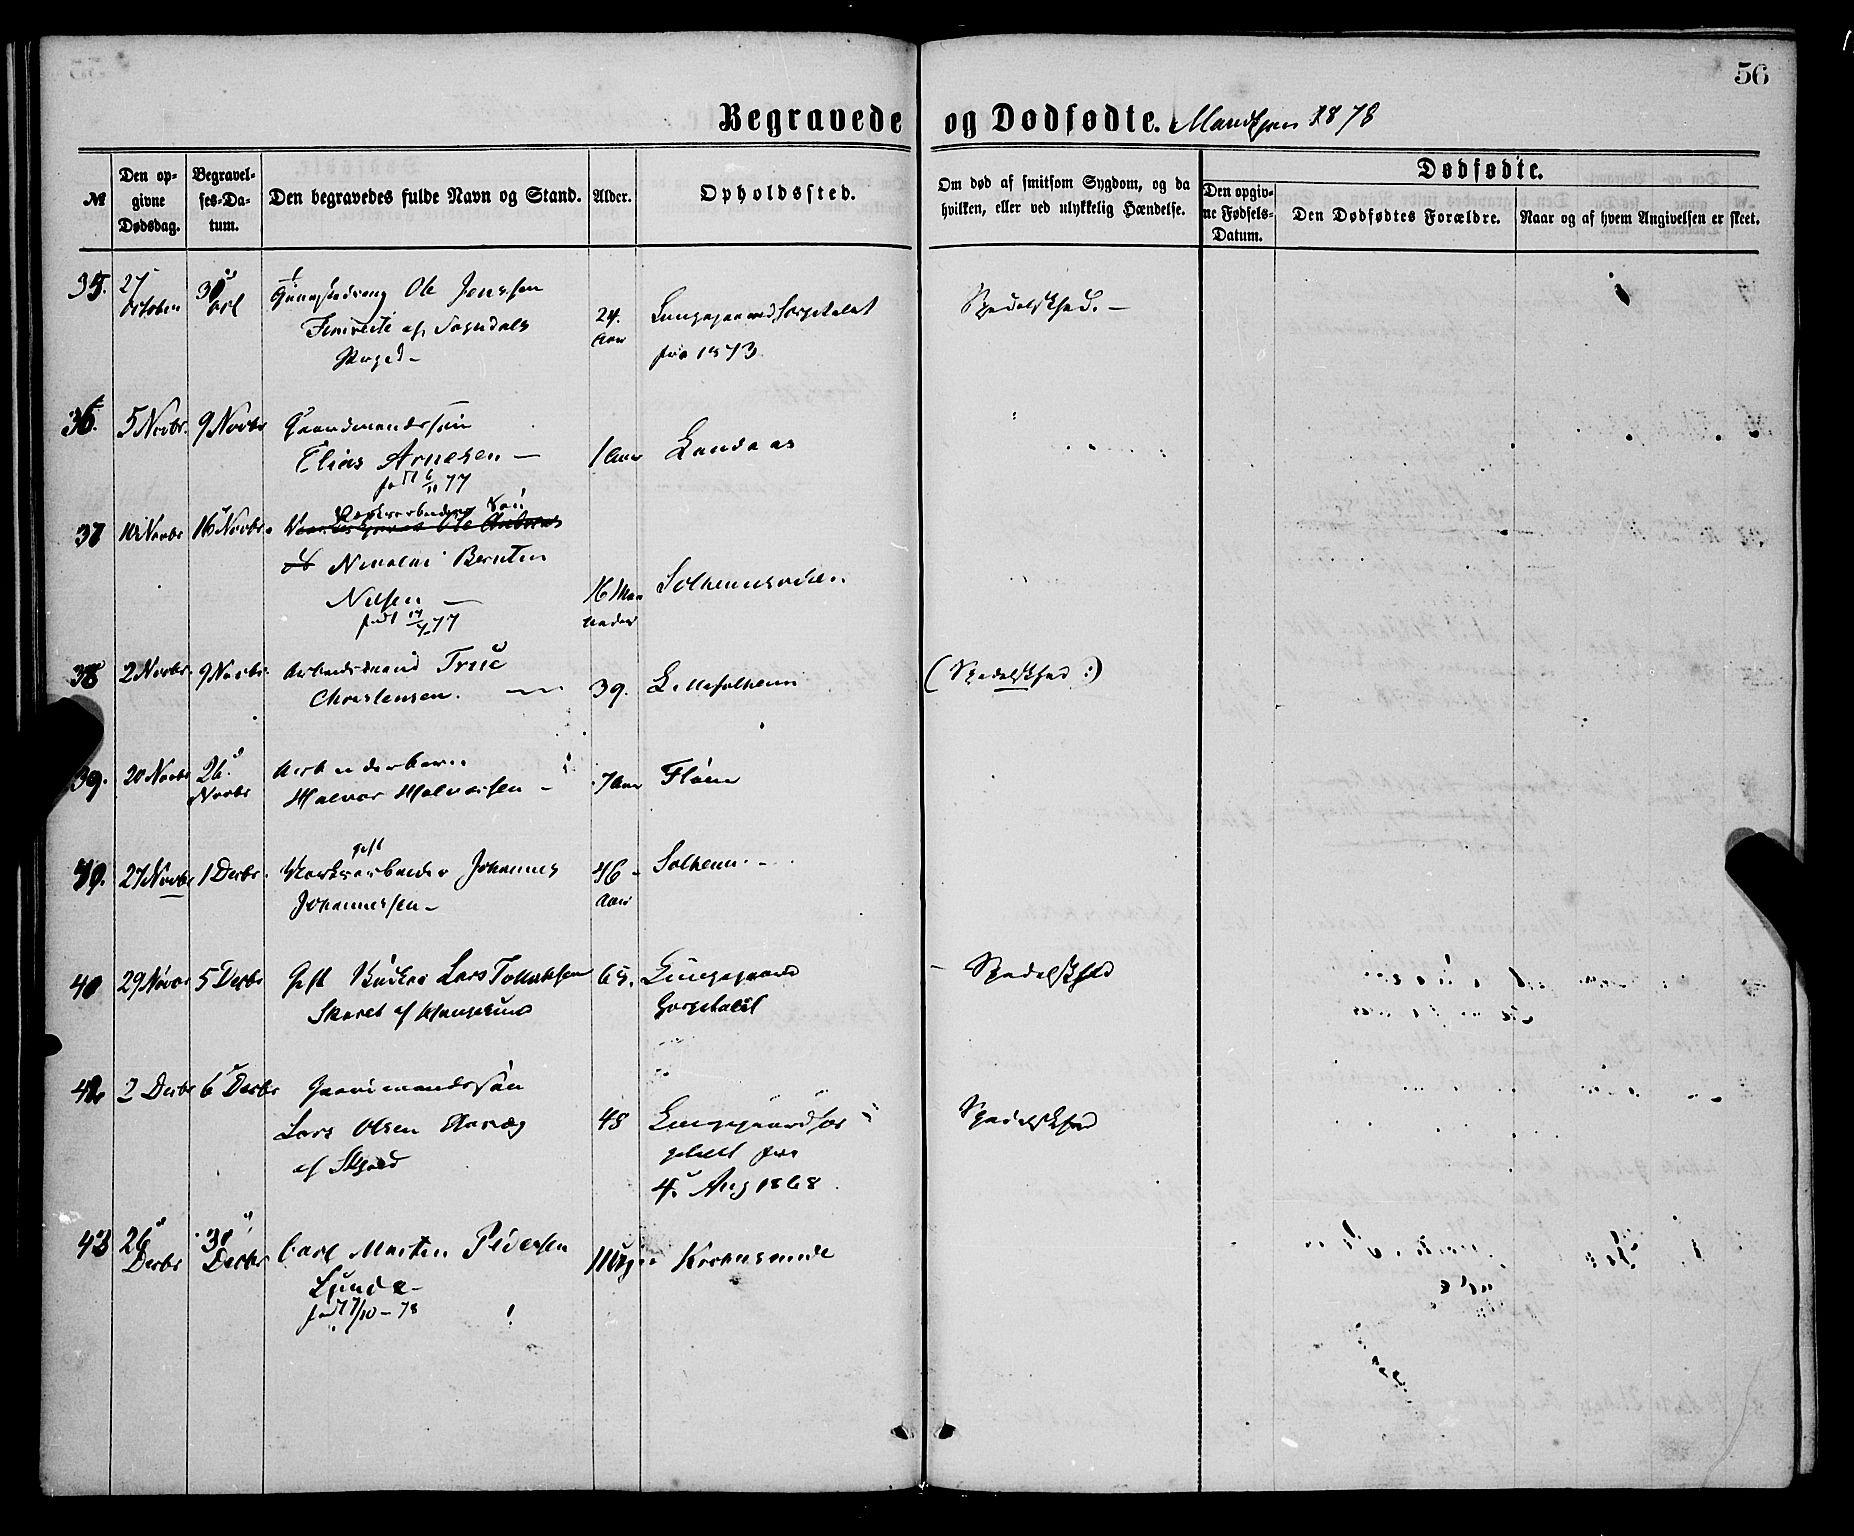 56
Begravede og Dødfødte. Mandkjøn 1878
№
Den opgivne Dødsdag.
Begravelses-Datum.
Den begravedes fulde Navn og Stand.
Alder.
Opholdssted.
Om død af smitsom Sygdom, og da hvilken, eller ved ulykkelig Hændelse.
Dødfødte.
Den opgivne Fødsels-Datum.
Den Dødfødtes Forældre.
Naar og af hvem Angivelsen er skeet.
35. 27 October 30 Ole Jenssen
af Sogndals
24. Aar Lungegaardshospitalet
fra 1873
Spedalskhed. —
36. 5 Novbr. 9 Novbr Gaardmandssøn
Elias Arnesen —
født 6/11 77
1 Aar Landaas
37 10 Novbr 16 Novbr.
Nicolai Berntin
Nilsen —
født 77
16 Maaneder Solheimsviken
38 2 Novbr. 9 Novbr. Arbeidsmand
Christensen.
39. Lillesolheim
(Spedalskhed :)
39. 20 Novbr 26. Novbr Arbeiderbarn
Halvor Halvorsen —
7 Aar Fløen
27 Novbr 1 Decbr. gift
Værksarbeider Johannes
Johannessen —
46 Aar Solheim. —
40 29 Novbr 5 Decbr Gift Lars
af
65. Lungegaards
Hospitalet
Spedalskhed
2 Decbr 6 Decbr Gaardmandssøn
Lars Olsen
af
48 Lungegaardshospitalet fra
4. Aug 1868.
Spedalskhed
26 Decbr Decbr Carl Martin Pedersen
Lunde —
født 7/10 – 78
11 Uger Kronsminde